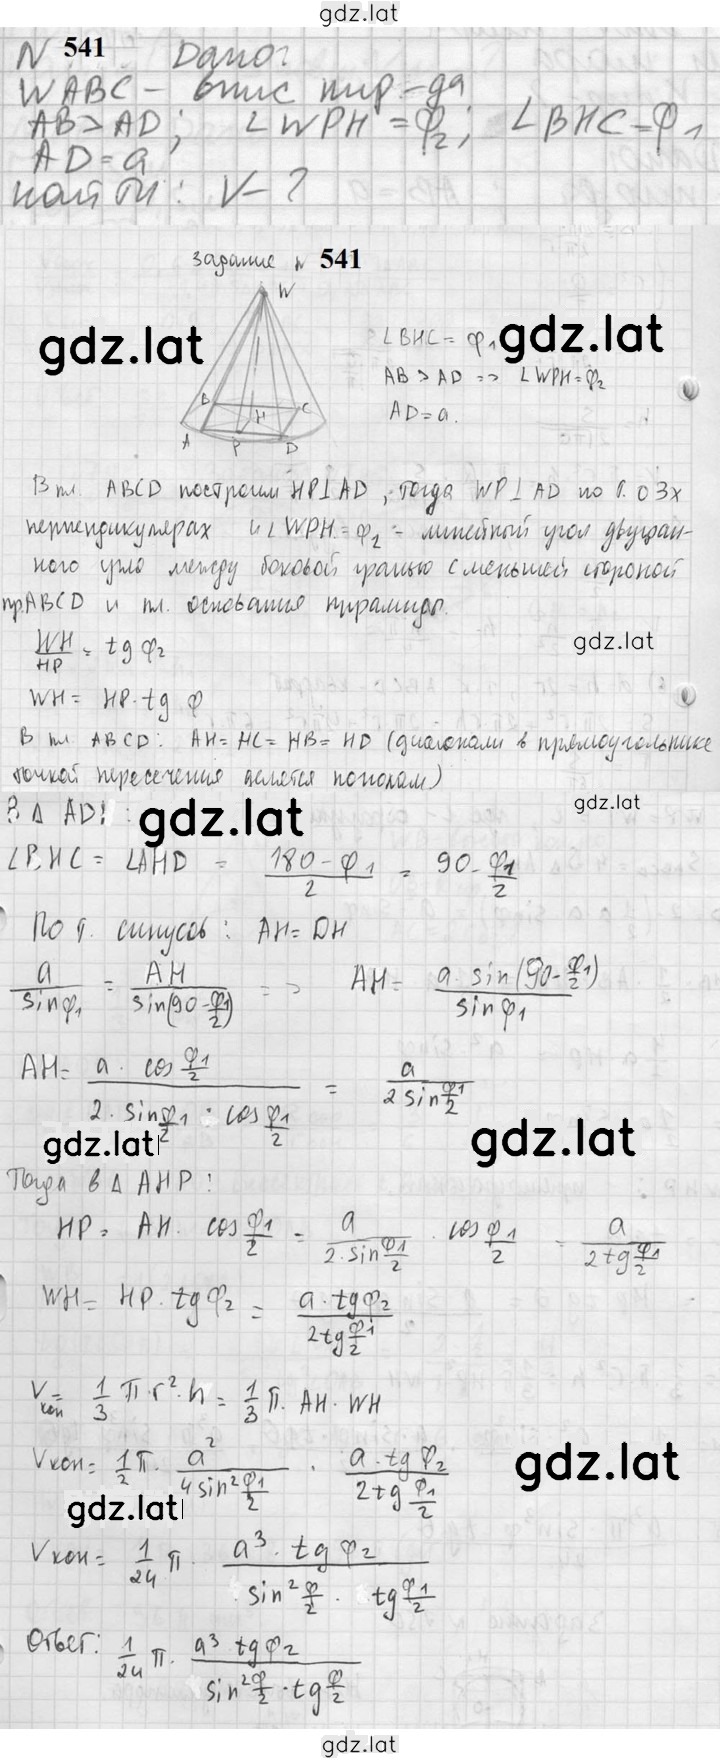 gdz.lat
N 541 Дано:
WABC – впис пир-да
AB > AD; ∠WPH = φ2; ∠BHC = φ1
AD = a
найти: V – ?
Задание N 541
W
gdz.lat
gdz.lat
∠BHC = φ1
AB > AD => ∠WPH = φ2
AD = a.
B
H
C
A
P
D
В пл. ABCD построим HP⊥AD, тогда WP⊥AD по т. о 3х
перпендикулярах и ∠WPH = φ2 - линейный угол двугран-
ного угла между боковой гранью с меньшей стороной
пр.ABCD и пл. основания пирамиды.
gdz.lat
WH/HP = tg φ2
WH = HP · tg φ
В пл. ABCD: AH = HC = HB = HD (диагонали в прямоугольнике
точкой пересечения делятся пополам)
gdz.lat
В Δ AD
gdz.lat
∠BHC = ∠AHD = (180 - φ1)/2 = 90 - φ1/2
По т. синусов: AH = DH
a/sin φ1 = AH/sin(90 - φ1/2) => AH = a · sin(90 - φ1/2)/sin φ1
AH = a · cos φ1/2 / 2 · sin φ1/2 · cos φ1/2 = a/2 sin φ1/2
gdz.lat
gdz.lat
Тогда в Δ AHP:
HP = AH · cos φ1/2 = a/2 · sin φ1/2 · cos φ1/2 = a/2 tg φ1/2
WH = HP · tg φ2 = a · tg φ2/2 tg φ1/2
Vкон = 1/3 π · r² · h = 1/3 π · AH · WH
Vкон = 1/2 π · a²/4 sin² φ1/2 · a · tg φ2/2 tg φ1/2
gdz.lat
gdz.lat
Vкон = 1/24 π · a³ · tg φ2/sin² φ/2 · tg φ1/2
Ответ: 1/24 π · a³ tg φ2/sin² φ/2 · tg φ/2
gdz.lat